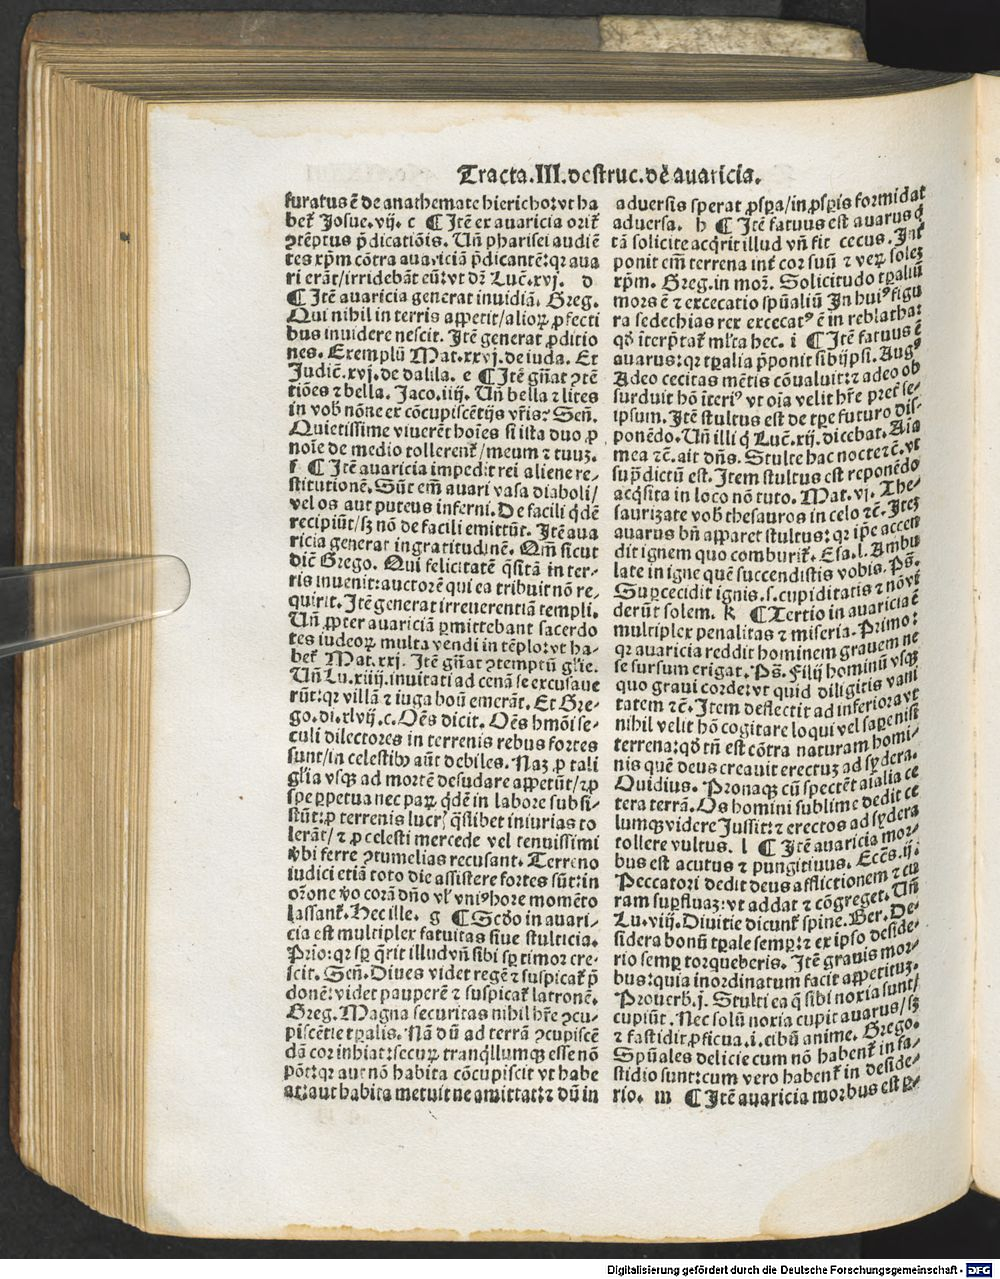 Tracta.III.destruc.dẽ auaricia.
furatus ẽ de anathemate hiericho:vt ha
bet᷑ Josue.vij. c ¶ Itẽ ex auaricia orit᷑
ꝯtẽptus p̃dicatiõis. Uñ pharisei audiẽ
tes xp̃m cõtra auariciã p̃dicantẽ:qꝛ aua
ri erãt/irridebãt eũ:vt dr̃ Luc̃.xvj. d
¶ Itẽ auaricia generat inuidiã. Greg.
Qui nihil in terris appetit/alioꝝ ꝓfecti
bus inuidere nescit. Itẽ generat ꝓditio
nes. Exemplũ Mat.xxvj.de iuda. Et
Judic̃.xvj.de dalila. e ¶ Itẽ gñat ꝯtẽ
tiões ⁊ bella. Jaco.iiij. Uñ bella ⁊ lites
in vob̃ nõne ex cõcupiscẽtijs vr̃is? Sen̄.
Quietissime viuerẽt hoĩes si ista duo ꝓ
noĩe de medio tollerent᷑/meum ⁊ tuuꝫ.
f ¶ Itẽ auaricia impedit rei aliene re-
stitutionẽ. Sũt em̃ auari vasa diaboli/
vel os aut puteus inferni. De facili q̇dẽ
recipiũt/sꝫ nõ de facili emittũt. Itẽ aua
ricia generat ingratitudinẽ. Qm̃ sicut
dic̃ Grego. Qui felicitatẽ q̃sitã in ter-
ris inuenit:auctorẽ qui ea tribuit nõ re-
quirit. Itẽ generat irreuerentiã templi.
Uñ ꝓpter auariciã ꝑmittebant sacerdo
tes iudeoꝝ multa vendi in tẽplo:vt ha-
bet᷑ Mat.xxj. Itẽ gñat ꝯtemptũ gl'ie.
Uñ Lu.xiiij.inuitati ad cenã se excusaue
rũt:qꝛ villã ⁊ iuga boũ emerãt. Et Gre-
go.di.xlvij.c.Oẽs dicit. Oẽs hmõi se-
culi dilectores in terrenis rebus fortes
sunt/in celestibꝰ aũt debiles. Naꝫ ꝓ tali
gl'ia vsqꝫ ad mortẽ desudare appetũt/⁊ ꝓ
spe ꝑpetua nec paꝝ q̇dẽ in labore subsi-
stũt:ꝓ terrenis lucr̃ q̃slibet iniurias to
lerãt/⁊ ꝓ celesti mercede vel tenuissimi
v̓bi ferre ꝯtumelias recusant. Terreno
iudici etiã toto die assistere fortes sũt:in
or̃one v̓o corã dño vl' vniꝰ hore momẽto
lassant᷑. Hec ille. g ¶ Scd̓o in auari-
cia est multiplex fatuitas siue stulticia.
Prĩo:qꝛ sꝑ q̃rit illud vñ sibi sꝑ timor cre-
scit. Sen̄.Diues videt regẽ ⁊ suspicat᷑ p̃
donẽ:videt pauperẽ ⁊ suspicat᷑ latronẽ.
Greg. Magna securitas nihil hr̃e ꝯcu-
piscẽtie tꝑalis. Nã dũ ad terrã ꝯcupiscẽ
dã cor inhiat:securꝝ tranq̇llumqꝫ esse nõ
põt:qꝛ aut nõ habita cõcupiscit vt habe
at:aut habita metuit ne amittat:⁊ dũ in
aduersis sperat ꝓspa/in ꝓspis formidat
aduersa. h ¶ Itẽ fatuus est auarus q̇
tã solicite acq̇rit illud vñ fit cecus. Int᷑
ponit em̃ terrena int᷑ cor suũ ⁊ veꝝ soleꝫ
xp̃m. Greg.in moꝛ. Solicitudo tꝑaliũ
mors ẽ ⁊ excecatio spũaliũ In huiꝰ figu
ra sedechias rex excecatꝰ ẽ in reblatha:
qd̓ iterp̃tat᷑ ml̃ta hec. i ¶ Itẽ fatuus ẽ
auarus:qꝛ tꝑalia p̃ponit sibijpsi. Augꝰ
Adeo cecitas mẽtis cõualuit:⁊ adeo ob
surduit hõ iteriꝰ vt oĩa velit hr̃e pret̃ se-
ipsum. Itẽ stultus est de tꝑe futuro dis-
ponẽdo. Uñ illi q̇ Luc̃.xij. dicebat. Aĩa
mea ⁊c̃.ait dñs. Stulte hac nocte ⁊c̃.vt
sup̃dictũ est. Item stultus est reponẽdo
acq̇sita in loco nõ tuto. Mat.vj. The-
saurizate vob̃ thesauros in celo ⁊c̃. Iteꝫ
auarus bñ apparet stultus:qꝛ ip̃e accen
dit ignem quo comburit᷑. Esa.l. Ambu
late in igne quẽ succendistis vobis. Ps̃.
Supcecidit ignis.s.cupiditatis ⁊ nõ vi
derũt solem. k ¶ Tertio in auaricia ẽ
multiplex penalitas ⁊ miseria. Primo:
qꝛ auaricia reddit hominem grauem ne
se sursum erigat. Ps̃. Filij hominũ vsqꝫ
quo graui corde:vt quid diligitis vani
tatem ⁊c̃. Item deflectit ad inferiora vt
nihil velit hõ cogitare loqui vel saꝑe nisi
terrena:qd̓ tñ est cõtra naturam homi-
nis quẽ deus creauit erectuꝫ ad sydera.
Ouidius. Pronaqꝫ cũ spectẽt aĩalia ce
tera terrã. Os homini sublime dedit ce
lumqꝫ videre Jussit:⁊ erectos ad sydera
tollere vultus. l ¶ Itẽ auaricia mor-
bus est acutus ⁊ pungitiuus. Ecc̃s.ij.
Peccatori dedit deus afflictionem ⁊ cu
ram supfluaꝫ:vt addat ⁊ cõgreget. Uñ
Lu.viij. Diuitie dicunt᷑ spine. Ber. De-
sidera bonũ tꝑale semꝑ:⁊ ex ipso deside-
rio semꝑ torqueberis. Itẽ grauis mor-
bus:quia inordinatum facit appetituꝫ.
Prouerb̃.j. Stulti ea q̃ sibi noxia sunt/
cupiũt. Nec solũ noxia cupit auarus/sꝫ
⁊ fastidit ꝓficua.i.cibũ anime. Grego.
Spũales delicie cum nõ habent᷑ in fa-
stidio sunt:cum vero habent᷑ in deside-
rio. m ¶ Itẽ auaricia morbus est ꝑ-
Digitalisierung gefördert durch die Deutsche Forschungsgemeinschaft - DFG